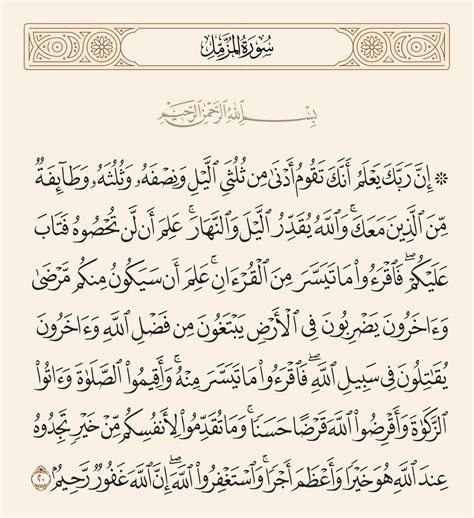 سُورَةُ المُزَّمِّل
بِسْمِ ٱللَّهِ ٱلرَّحْمَٰنِ ٱلرَّحِيمِ
۞ إِنَّ رَبَّكَ يَعْلَمُ أَنَّكَ تَقُومُ أَدْنَىٰ مِن ثُلُثَىِ ٱلَّيْلِ وَنِصْفَهُۥ وَثُلُثَهُۥ وَطَآئِفَةٌ
مِّنَ ٱلَّذِينَ مَعَكَ ۚ وَٱللَّهُ يُقَدِّرُ ٱلَّيْلَ وَٱلنَّهَارَ ۚ عَلِمَ أَن لَّن تُحْصُوهُ فَتَابَ
عَلَيْكُمْ ۖ فَٱقْرَءُوا۟ مَا تَيَسَّرَ مِنَ ٱلْقُرْءَانِ ۚ عَلِمَ أَن سَيَكُونُ مِنكُم مَّرْضَىٰ
وَءَاخَرُونَ يَضْرِبُونَ فِى ٱلْأَرْضِ يَبْتَغُونَ مِن فَضْلِ ٱللَّهِ وَءَاخَرُونَ
يُقَٰتِلُونَ فِى سَبِيلِ ٱللَّهِ ۖ فَٱقْرَءُوا۟ مَا تَيَسَّرَ مِنْهُ ۚ وَأَقِيمُوا۟ ٱلصَّلَوٰةَ وَءَاتُوا۟
ٱلزَّكَوٰةَ وَأَقْرِضُوا۟ ٱللَّهَ قَرْضًا حَسَنًا ۚ وَمَا تُقَدِّمُوا۟ لِأَنفُسِكُم مِّنْ خَيْرٍ تَجِدُوهُ
عِندَ ٱللَّهِ هُوَ خَيْرًا وَأَعْظَمَ أَجْرًا ۚ وَٱسْتَغْفِرُوا۟ ٱللَّهَ ۖ إِنَّ ٱللَّهَ غَفُورٌ رَّحِيمٌۢ ٢٠